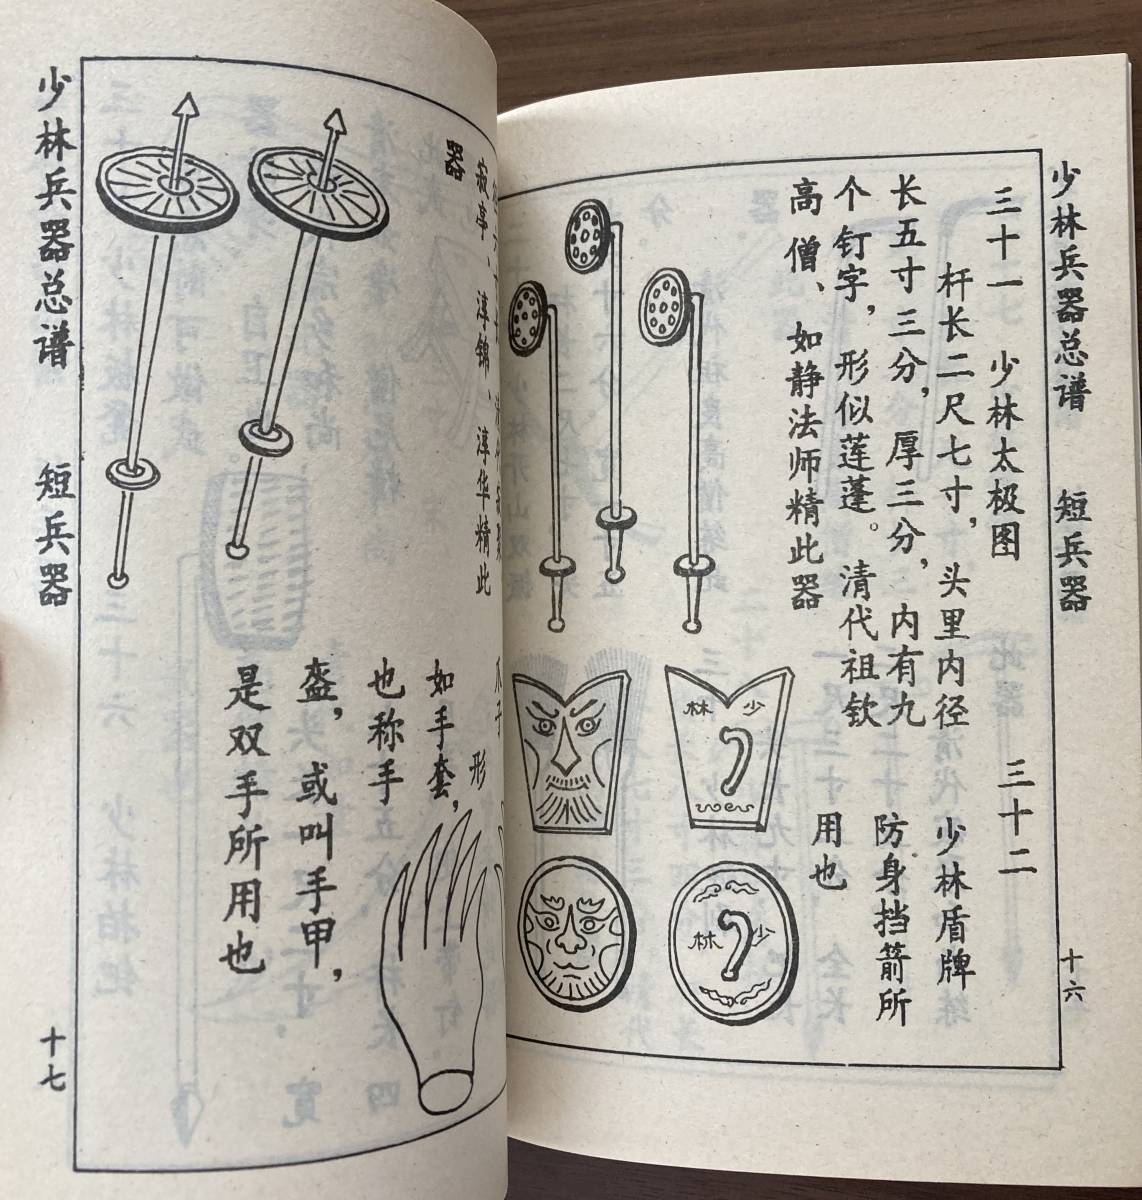 少林兵器总谱 短兵器
十六
三十一 少林太极图
杆长二尺七寸，头里内径
长五寸三分，厚三分，内有九
个钉字，形似莲蓬。清代祖钦
高僧、如静法师精此器
三十二
少林盾牌
防身挡箭所
用也
少林
少林
寂亭、淳锦、淳华精此
器
爪子
形
如手套，
也称手
盔，或叫手甲，
是双手所用也
少林兵器总谱 短兵器
十七